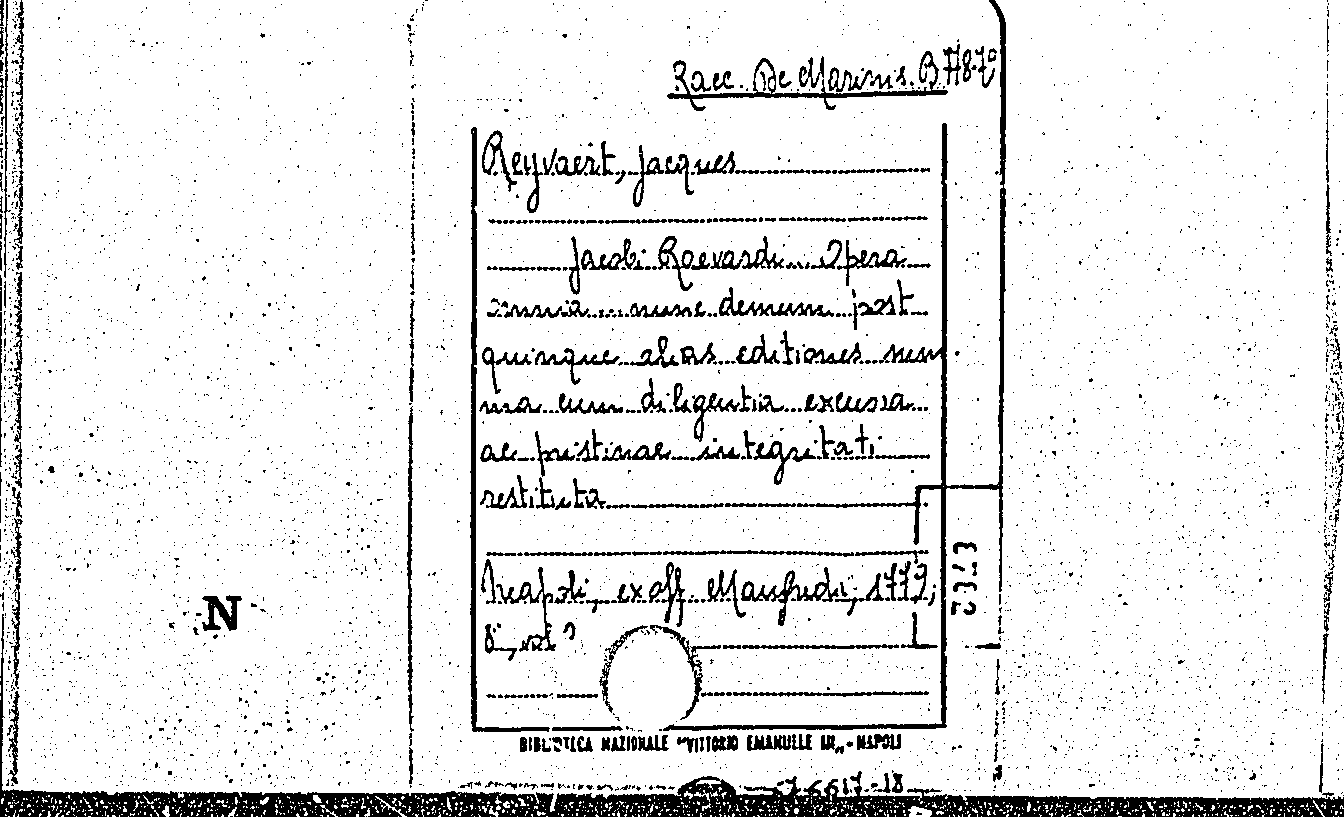 Racc. De Marinis. B 778-79
Reyvaert, Jacques
Jacobi Raevardi... Opera
omnia ... nunc demum post
quinque alias editiones sum.
ma cum diligentia excusa
ac pristinae integritati
restituta
Neapoli, ex off. Manfredi, 1779;
8°, vol
N
BIBLIOTECA NAZIONALE "VITTORIO EMANUELE III„ - NAPOLI
6617-18